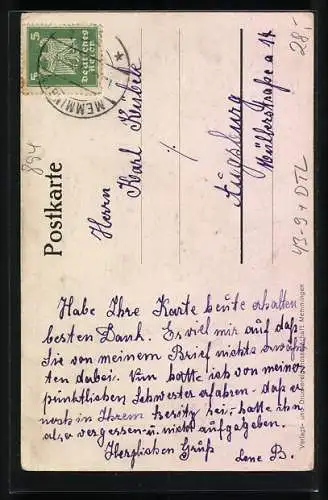 5 Deutsches Reich 5
MEMMINGEN
Postkarte
Herrn
Karl
Augsburg
Müllerstraße a 14
28,-
894
43-9 + DTL
Habe Ihre Karte heute erhalten
besten Dank. Es viel mir auf daß
Sie von meinem Brief nichts erwähn-
ten dabei. Nun hatte ich von meiner
pünktlichen Schwester erfahren, daß er
noch in Ihrem sei, hatte ihn
also vergessen u. nicht aufgegeben.
Herzlichen Gruß
Lene B.
Verlags- und Druckereigenossenschaft Memmingen